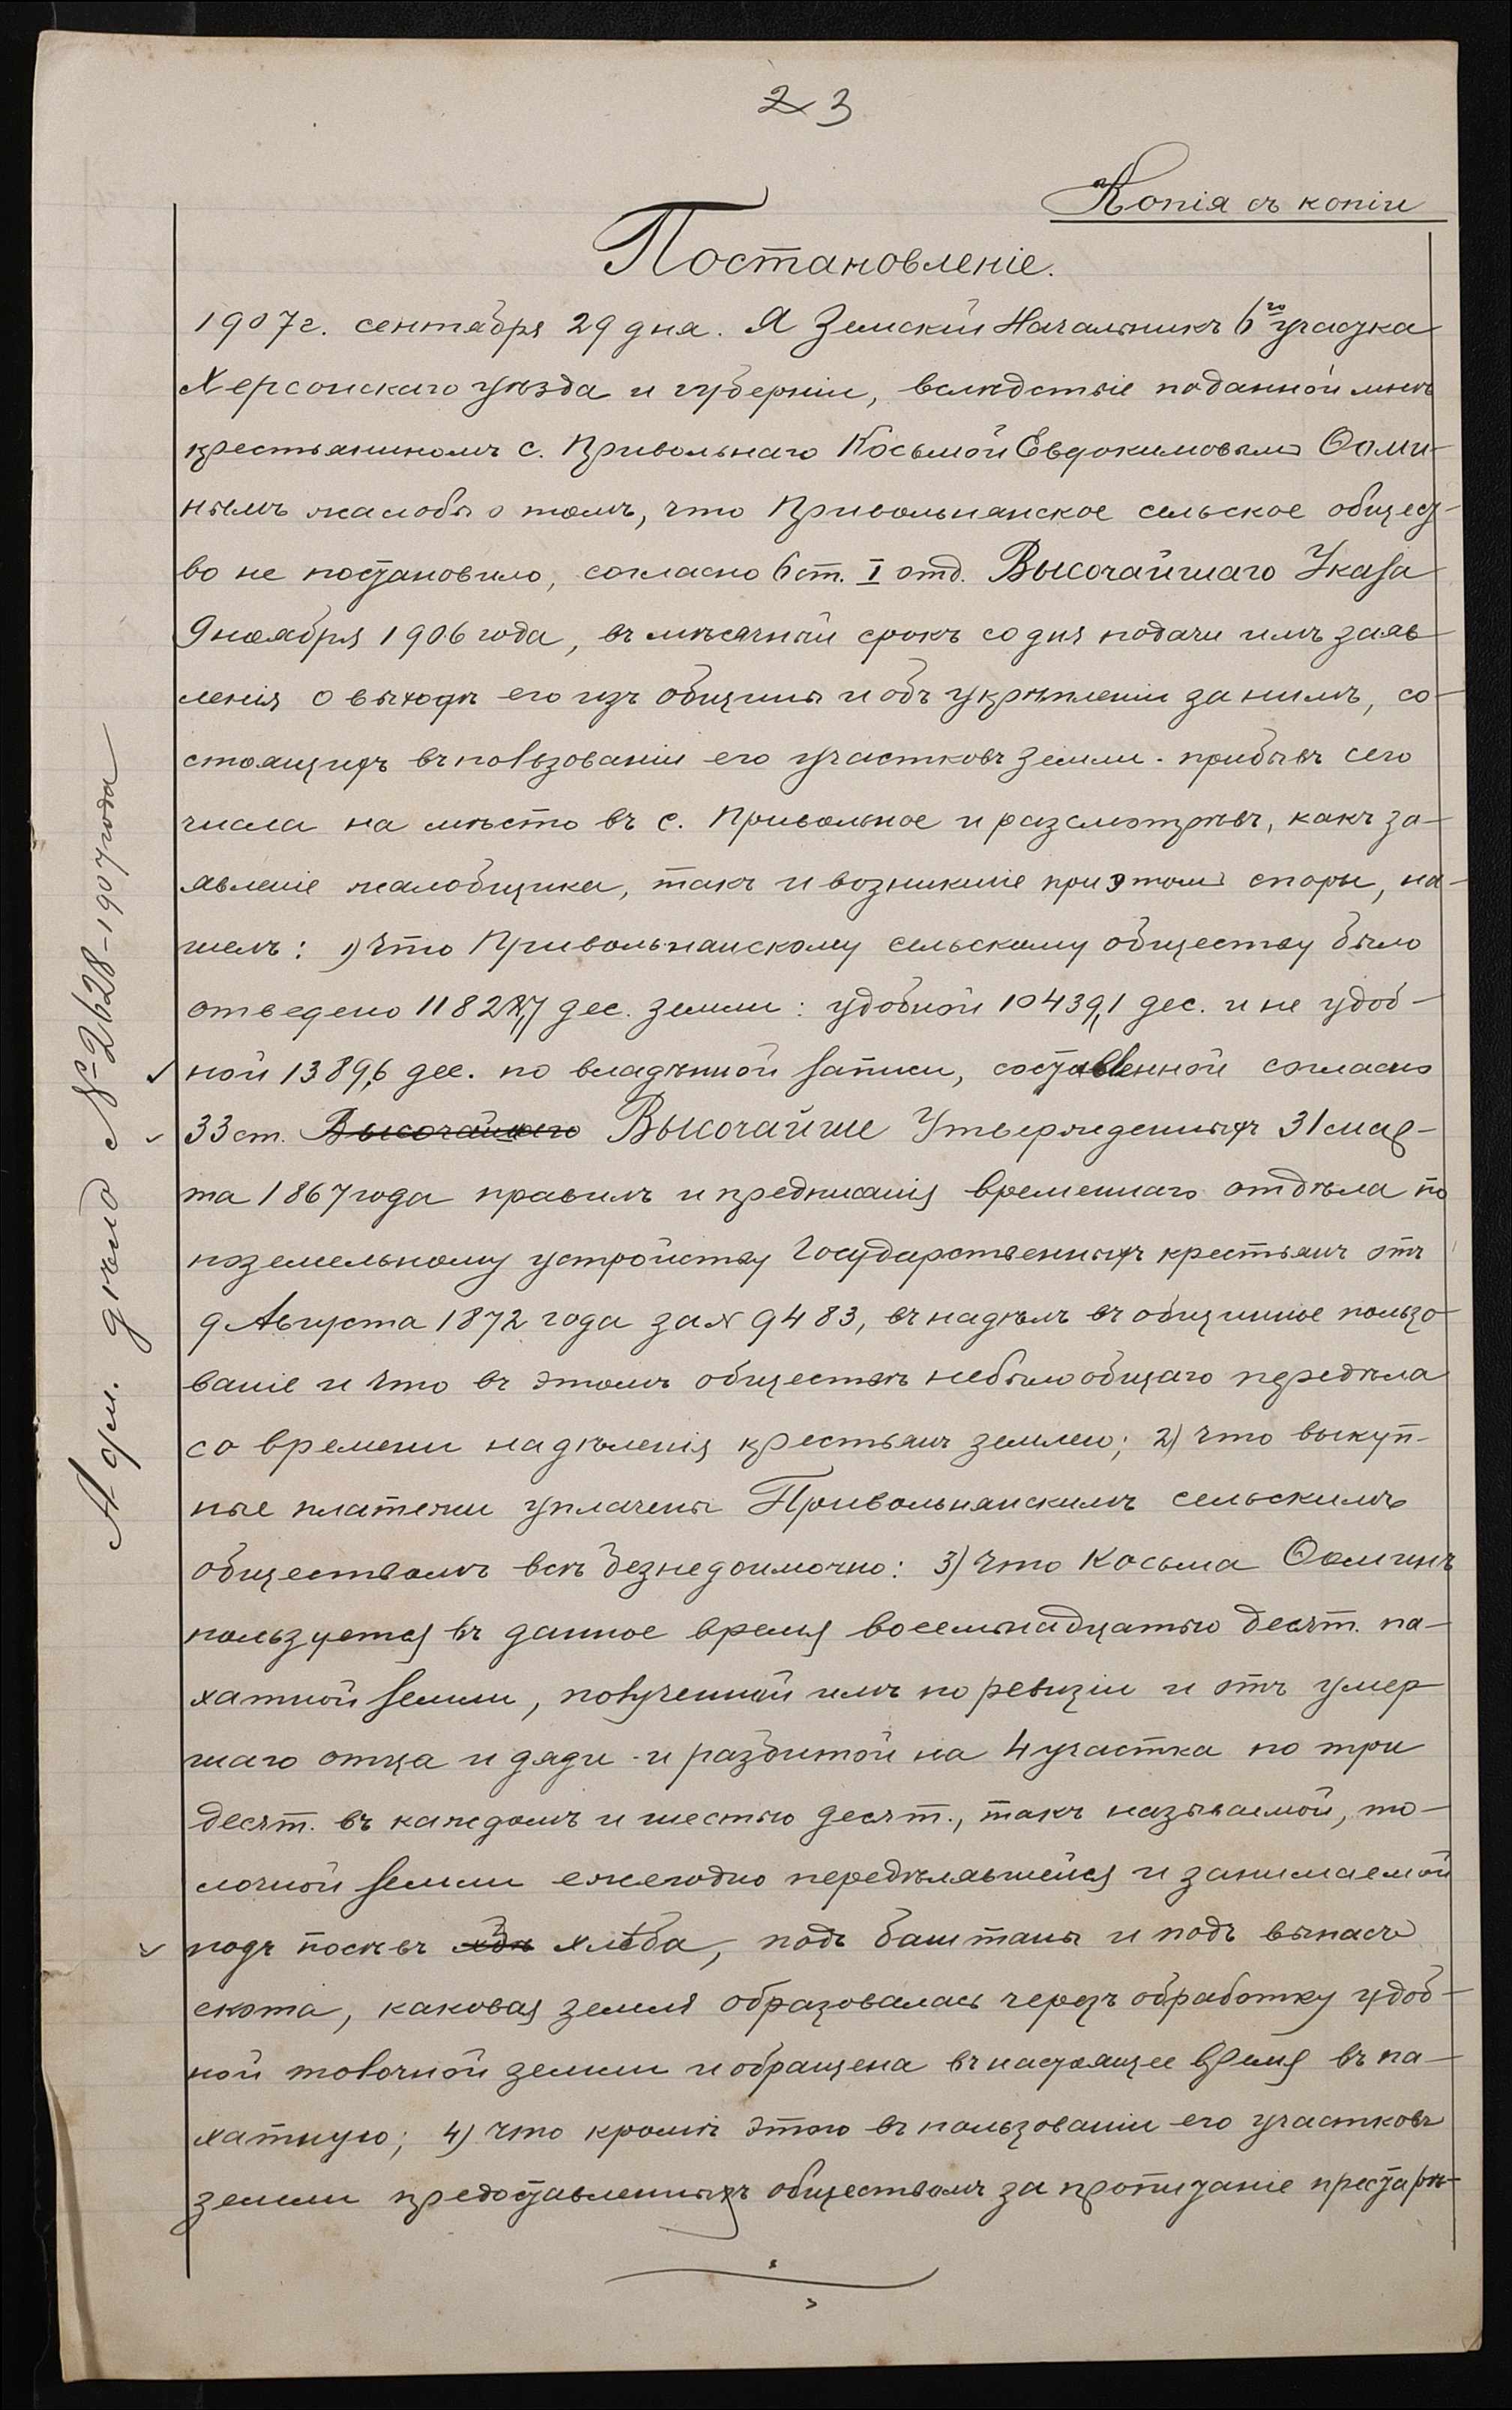 2 3
Копія съ копіи
Постановленіе.
1907 г. сентября 29 дня. Я Земскій Начальникъ 6го участка
Херсонскаго уѣзда и губерніи, вслѣдствіе поданной мнѣ
крестьяниномъ с. Привольнаго Косьмой Евдокимовымъ Ѳоми-
нымъ жалобы о томъ, что Привольнянское сельское общест-
во не постановило, согласно 6 ст. I отд. Высочайшаго Указа
9 ноября 1906 года, въ мѣсячный срокъ со дня подачи имъ заяв-
ленія о выходѣ его изъ общины и объ укрѣпленіи за нимъ, со-
стоящихъ въ пользованіи его участковъ земли. прибывъ сего
числа на мѣсто въ с. Привольное и разсмотрѣвъ, какъ за-
явленіе жалобщика, такъ и возникшіе при этомъ споры, на-
шелъ: 1) что Привольнанскому сельскому обществу было
отведено 11828,7 дес. земли: удобной 10439,1 дес. и не удоб-
ной 1389,6 дес. по владѣнной записи, составленной согласно
33 ст. Высочайшаго Высочайше Утвержденныхъ 31 мар-
та 1867 года правилъ и предписанія временнаго отдѣла по
поземельному устройству Государственныхъ крестьянъ отъ
9 Августа 1872 года за № 9483, въ надѣлъ въ общинное пользо-
ваніе и что въ этомъ обществѣ небыло общаго передѣла
со времени надѣленія крестьянъ землею; 2) что выкуп-
ные платежи уплачены Привольнянскимъ сельскимъ
обществомъ всѣ безнедоимочно: 3) что Косьма Ѳоминъ
пользуется въ данное время восемьнадцатью десят. па-
хатной земли, полученной имъ по ревизіи и отъ умер
шаго отца и дяди и разбитой на 4 участка по три
десят. въ каждомъ и шестью десят., такъ называемой, то-
лочной земли ежегодно передѣлявшейся и занимаемой
подъ посѣвъ хлѣба, подъ баштаны и подъ выпасъ
скота, каковая земля образовалась черезъ обработку удоб-
ной толочной земли и обращена въ настоящее время въ па-
хатную; 4) что кромѣ этого въ пользованіи его участковъ
земли предоставленныхъ обществомъ за пропитаніе престарѣ-
Адм. дѣло № 2628-1907 года